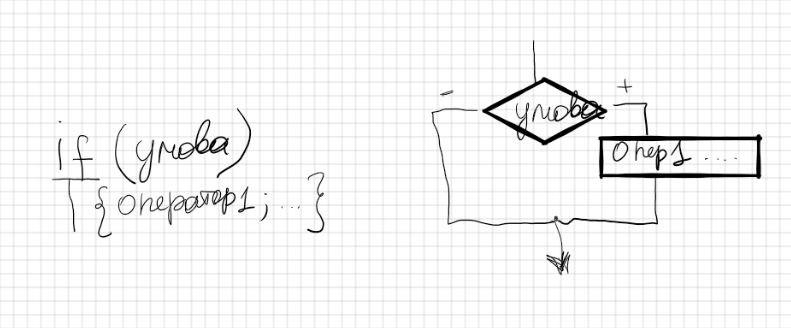 if (умова)
{оператор1; ...}
- умова +
Опер1 ....